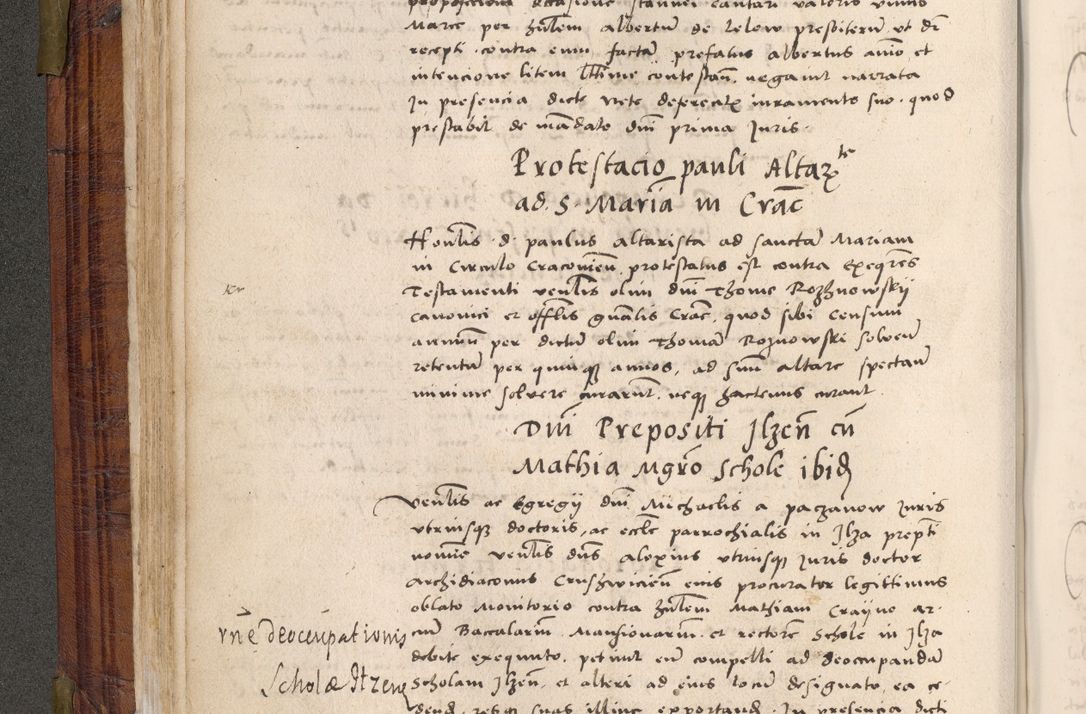 proposicioni occasione stannei cantari valoris unius
Marce per hu͞lem albertu͞ de Lelow presbiteru͞ ut d͞r
recepti contra eum facta͞ prefatus albertus a͞nio et
intencione litem l͞ttime contestan͞. negavit narrata
In presencia dicte Nete deferentꝭ iuramento suo. quod
prestabit de ma͞dato d͞ni prima Iuris.
Protestacio pauli Altarꝭte
ad S. Maria͞ in Crac͞
Hon͞lis d. paulus altarista ad sancta͞ Mariam
in Circulo Cracovien͞ protestatus est contra Exeq͞res
Testamenti ven͞lis olim d͞ni Thome Rozhnowskij
canonici et off͞lis gn͞alis Crac͞, quod sibi Censum
annuu͞ per dictu͞ olim Thoma͞ Roznowski solven͞
retentu͞ per quinqꝫ annos, ad suu͞ altare spectan͞
minime solvere curaru͞t. neqꝫ hactenus curant
D͞ni Prepositi Ilzen͞ cu͞
Mathia Mgr͞o Schole ibid͞
Ven͞lis ac Egregij d͞ni Michaelis a paczanow Iuris
utriusqꝫ doctoris, ac eccl͞e parrochialis in Ilza prep͞ti
nomi͞e ven͞lis d͞ns alexius utriusqꝫ Iuris doctor
archidiaconus Crushwicien͞ eius procurator legittimus
oblato Monitorio contra hu͞lem Mathiam Crayno ar-
ciu͞ Baccalariu͞. Mansionariu͞. et rectore͞ Schole in Ilza
debite exequuto. petivit eu͞ compelli ad deoccupanda͞
Scholam Ilzen͞, et alteri ad eius locu͞ designato, ea ce-
dend͞. resqꝫ suas illinc exportand͞. In presencia dicti
r͞ne deoccupationis
Scholæ Ilzens